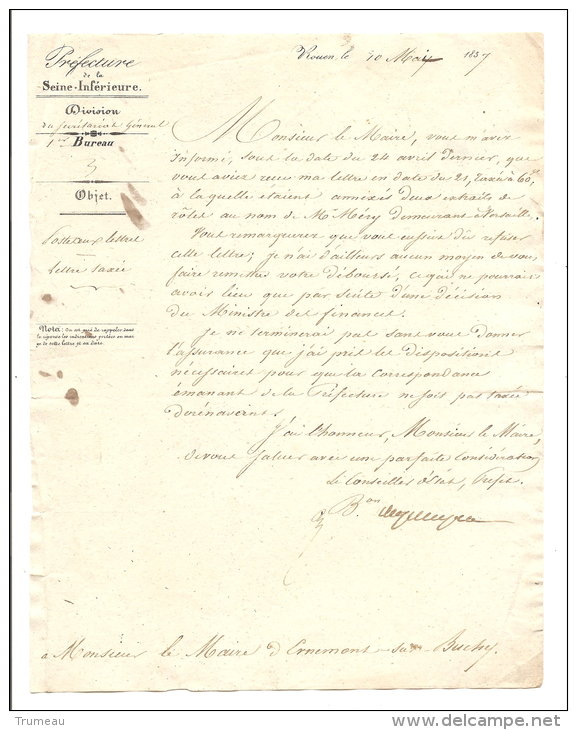 Préfecture
de la
Seine-Inférieure.
Division
du Secrétariat Général
1er Bureau
Objet.
Poste aux lettres
Lettre taxée
Nota: On est prié de rappeler dans
la réponse les indications portées en mar
ge de cette lettre et sa date.
Rouen, le 10 Mai 1837
Monsieur le Maire, vous m'avez
informé, sous la date du 24 avril dernier, que
vous aviez reçu ma lettre en date du 21, taxée à 60 c,
à laquelle étaient annexés deux extraits de
rôles au nom de M. Méry demeurant à Versailles.
Vous remarquerez que vous eussiez dû refuser
cette lettre; je n'ai d'ailleurs aucun moyen de vous
faire remettre votre déboursé, ce qui ne pourrait
avoir lieu que par suite d'une décision
du Ministre des finances.
Je ne terminerai pas sans vous donner
l'assurance que j'ai pris les dispositions
nécessaires pour que la correspondance
émanant de la Préfecture ne soit pas taxée
dorénavent.
J'ai l'honneur, Monsieur le Maire,
de vous saluer avec une parfaite considération
Le Conseiller d'Etat, Préfet.
Bon
a Monsieur le Maire d'Ernemont-sur-Buchy.
Trumeau
delcampe.net